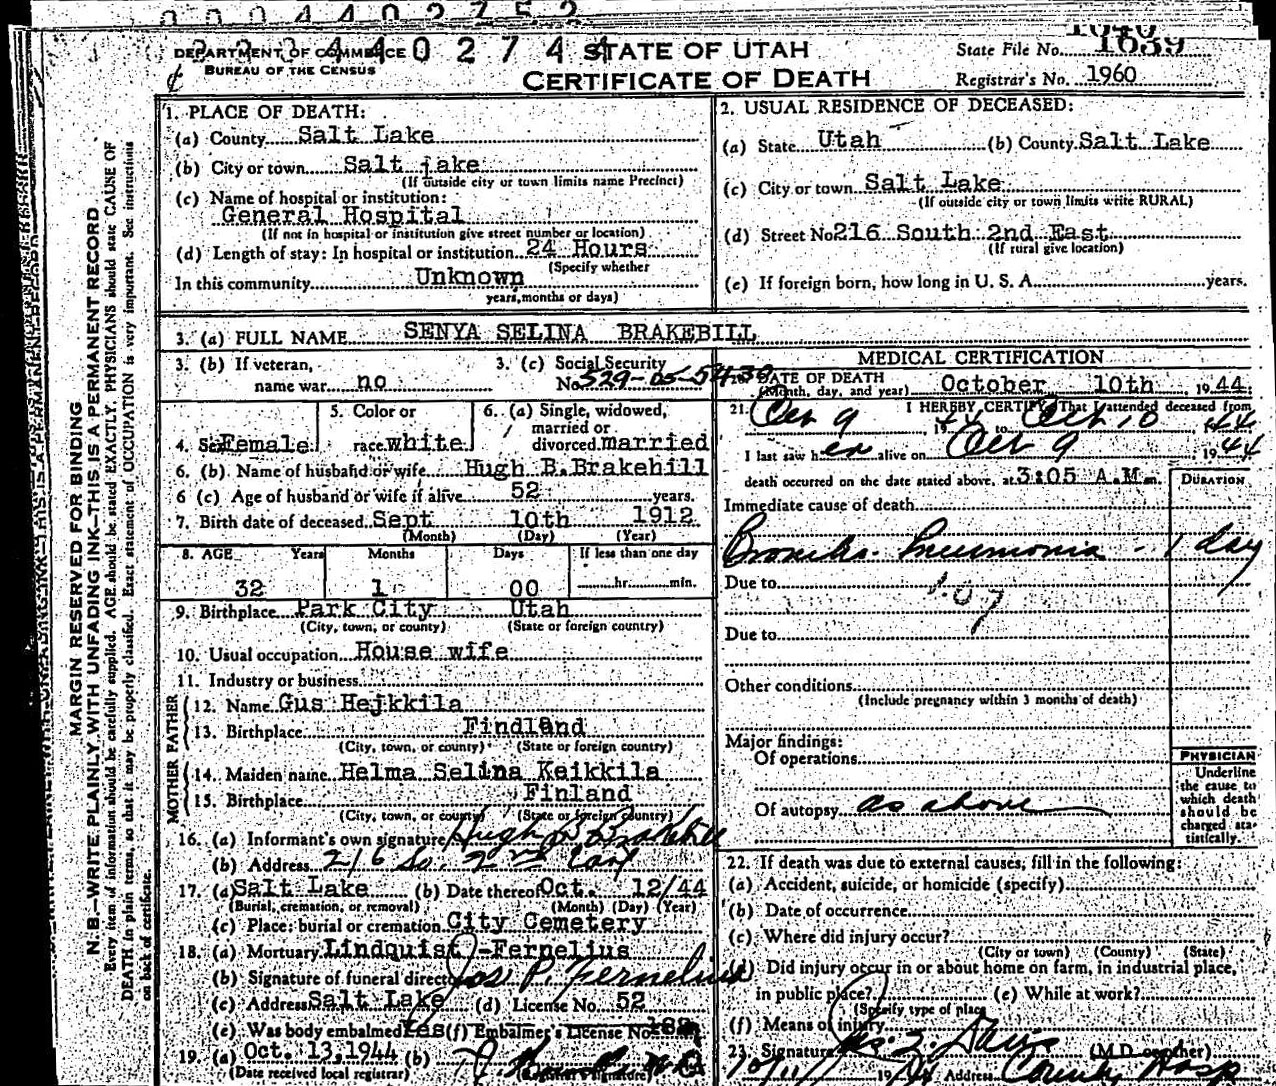 0 0 0 4 4 0 2 7 5 2
DEPARTMENT OF COMMERCE
BUREAU OF THE CENSUS
4 4 0 2 7 4
STATE OF UTAH
CERTIFICATE OF DEATH
State File No. 1639
Registrar's No. 1960
MARGIN RESERVED FOR BINDING
N.B.—WRITE PLAINLY, WITH UNFADING INK—THIS IS A PERMANENT RECORD
Every item of information should be carefully supplied. AGE should be stated EXACTLY. PHYSICIANS should state CAUSE OF
DEATH in plain terms, so that it may be properly classified. Exact statement of OCCUPATION is very important. See instructions
on back of certificate.
1. PLACE OF DEATH:
(a) County Salt Lake
(b) City or town Salt Lake
(If outside city or town limits name Precinct)
(c) Name of hospital or institution:
General Hospital
(If not in hospital or institution give street number or location)
(d) Length of stay: In hospital or institution 24 Hours
(Specify whether
In this community Unknown
years, months or days)
2. USUAL RESIDENCE OF DECEASED:
(a) State Utah (b) County Salt Lake
(c) City or town Salt Lake
(If outside city or town limits write RURAL)
(d) Street No 216 South 2nd East
(If rural give location)
(e) If foreign born, how long in U. S. A. years.
3. (a) FULL NAME SENYA SELINA BRAKEBILL
3. (b) If veteran,
name war no
3. (c) Social Security
No. 529-05-5430
4. Sex Female
5. Color or
race white
6. (a) Single, widowed,
married or
divorced married
6. (b) Name of husband or wife Hugh B. Brakehill
6 (c) Age of husband or wife if alive 52 years.
7. Birth date of deceased Sept 10th 1912
(Month) (Day) (Year)
8. AGE Years Months Days If less than one day
32 1 00 hr. min.
9. Birthplace Park City Utah
(City, town, or county) (State or foreign country)
10. Usual occupation House wife
11. Industry or business
FATHER
12. Name Gus Hejkkila
13. Birthplace Findland
(City, town, or county) (State or foreign country)
MOTHER
14. Maiden name Helma Selina Keikkila
15. Birthplace Finland
(City, town, or county) (State or foreign country)
16. (a) Informant's own signature Hugh B. Brakebill
(b) Address 216 So. 2nd East
17. (a) Salt Lake (b) Date thereof Oct. 12/44
(Burial, cremation, or removal) (Month) (Day) (Year)
(c) Place: burial or cremation City Cemetery
18. (a) Mortuary Lindquist-Fernelius
(b) Signature of funeral director Jos P. Fernelius
(c) Address Salt Lake (d) License No. 52
(e) Was body embalmed Yes (f) Embalmer's License No.
19. (a) Oct. 13, 1944 (b)
(Date received local registrar) (Registrar's signature)
MEDICAL CERTIFICATION
20. DATE OF DEATH
(Month, day, and year) October 10th, 1944
21. I HEREBY CERTIFY That I attended deceased from
Oct 9, 1944 to Oct 10 1944
I last saw her alive on Oct 9, 1944
death occurred on the date stated above, at 3:05 A.M. m.
DURATION
Immediate cause of death
Broncho. Pneumonia - 1 day
Due to 107
Due to
Other conditions
(Include pregnancy within 3 months of death)
Major findings:
Of operations
Of autopsy as above
PHYSICIAN
Underline
the cause to
which death
should be
charged sta-
tistically.
22. If death was due to external causes, fill in the following:
(a) Accident, suicide, or homicide (specify)
(b) Date of occurrence
(c) Where did injury occur?
(City or town) (County) (State)
(d) Did injury occur in or about home on farm, in industrial place,
in public place? (e) While at work?
(Specify type of place
(f) Means of injury
23. Signature Davis (M.D. or other)
10/11/ 1944 Address County Hosp